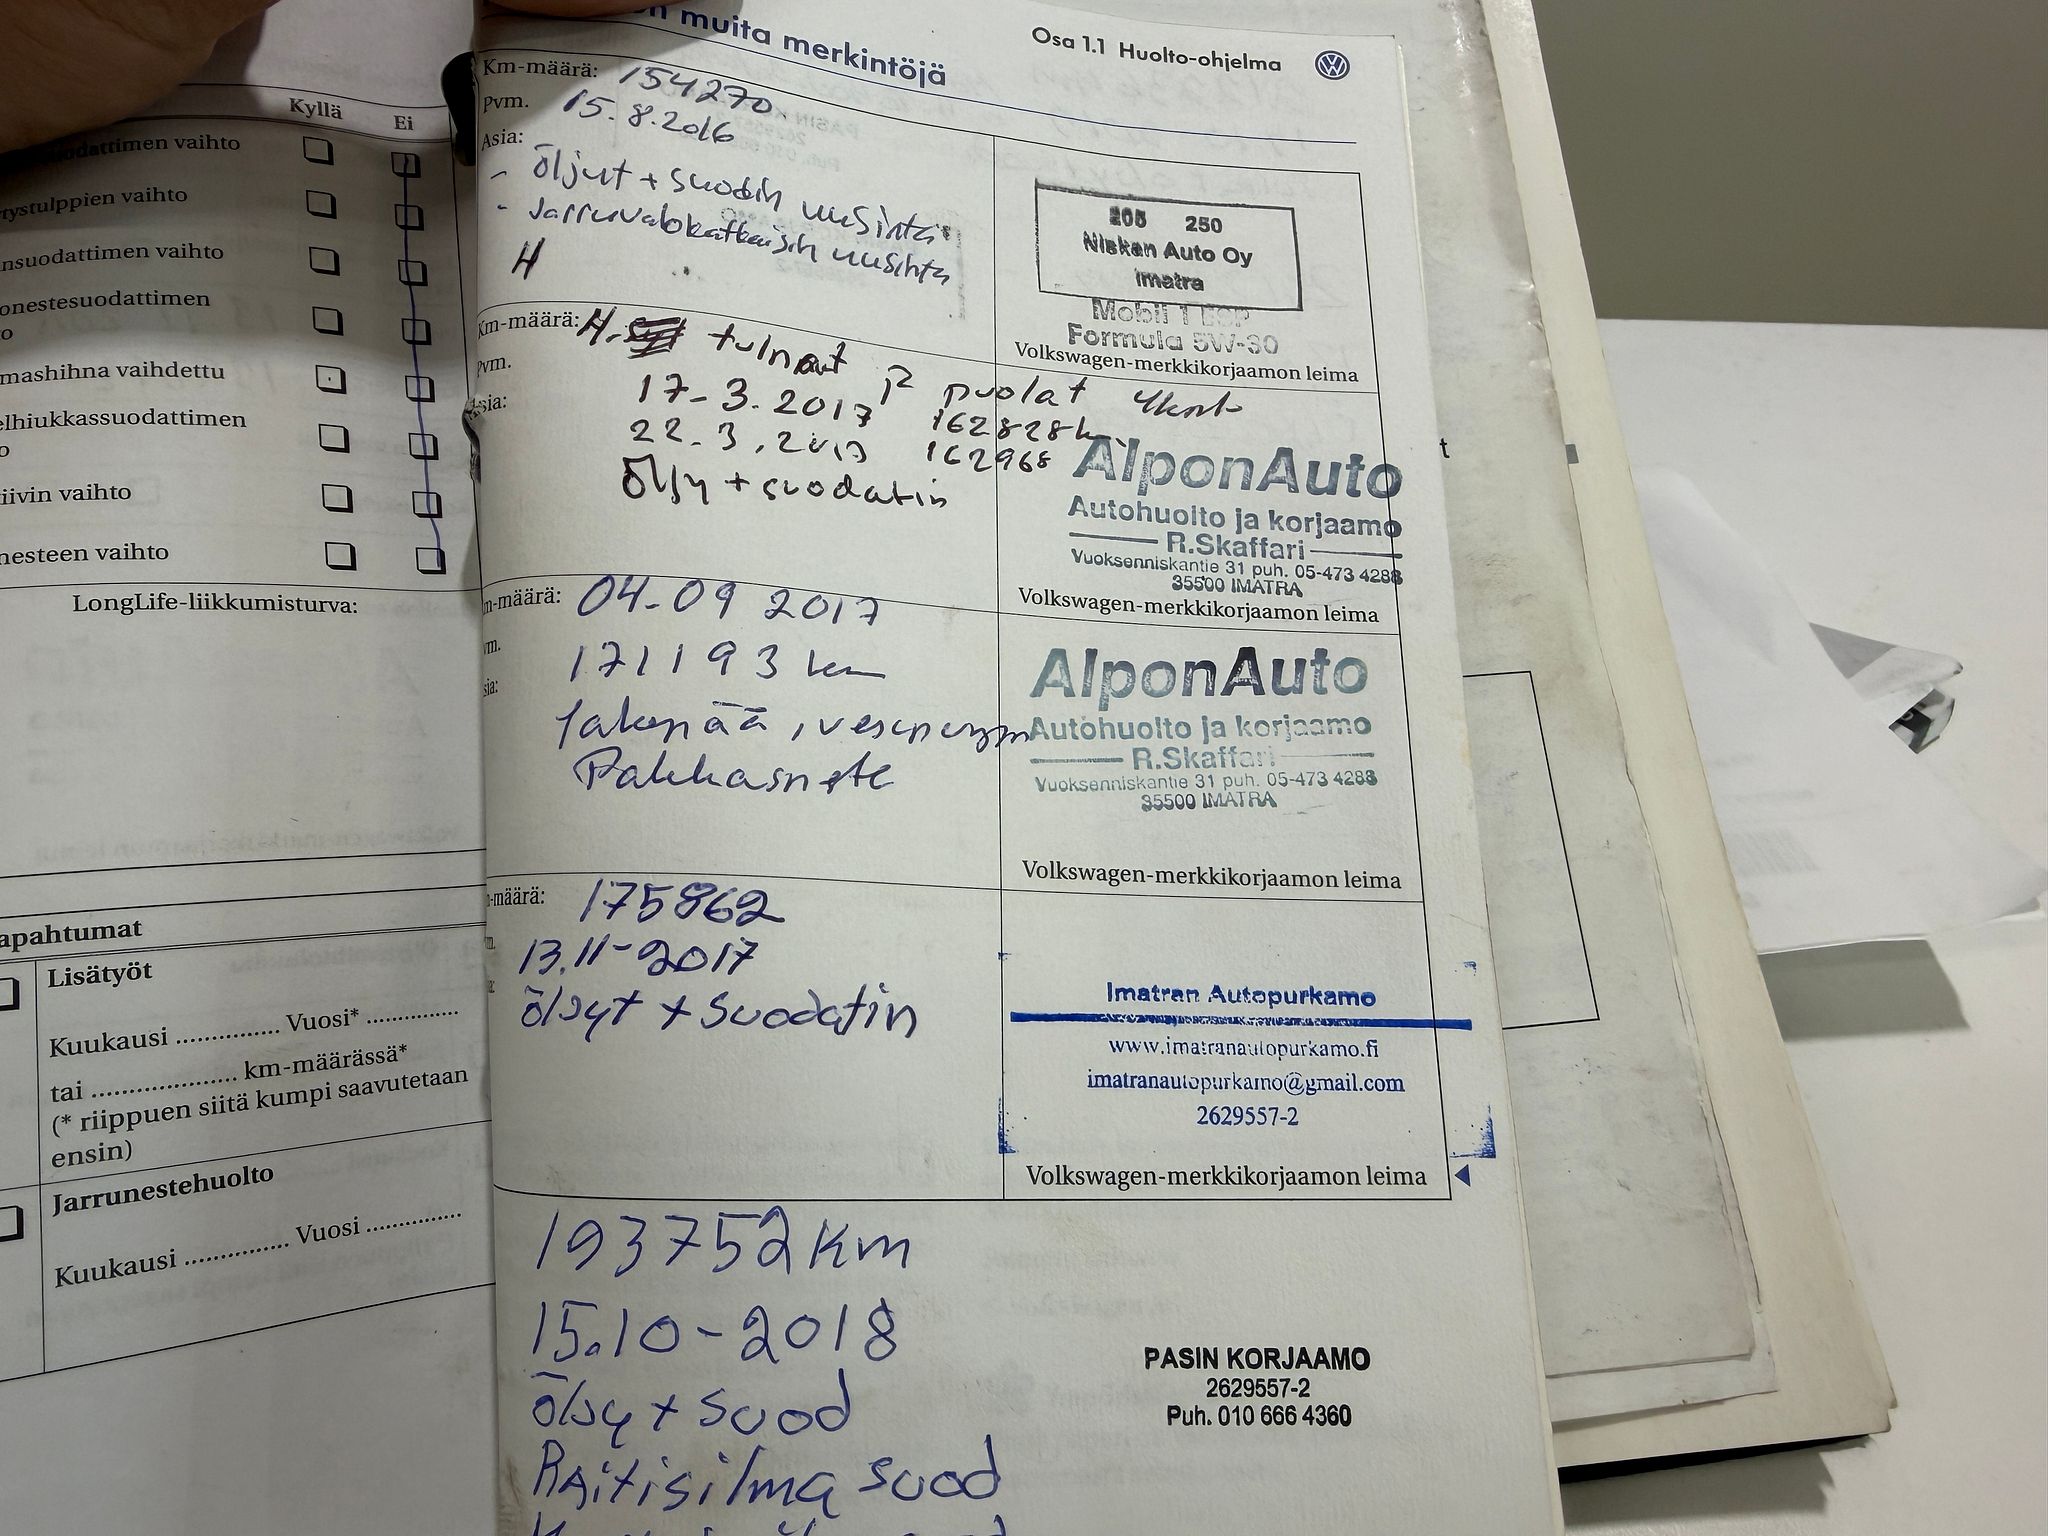 Kyllä Ei
uodattimen vaihto
tystulppien vaihto
nsuodattimen vaihto
onestesuodattimen
o
mashihna vaihdettu
elhiukkassuodattimen
o
tiivin vaihto
nesteen vaihto
LongLife-liikkumisturva:
apahtumat
Lisätyöt
Kuukausi .............. Vuosi* ..............
tai .................... km-määrässä*
(* riippuen siitä kumpi saavutetaan
ensin)
Jarrunestehuolto
Kuukausi .............. Vuosi ..............
n muita merkintöjä
Osa 1.1 Huolto-ohjelma
Km-määrä: 154270
Pvm. 15.8.2016
Asia:
- öljyt + suodin uusinta
- Jarruvalokatkaisin uusinta
H
205 250
Niskan Auto Oy
Imatra
Mobil 1 ESP
Formula 5W-30
Volkswagen-merkkikorjaamon leima
Km-määrä: H. tulpat puolat 4kpl
Pvm. 17-3.2017 162828k
sia: 22.3.2017 162968
Öljy + suodatin
AlponAuto
Autohuolto ja korjaamo
R.Skaffari
Vuoksenniskantie 31 puh. 05-473 4288
35500 IMATRA
Volkswagen-merkkikorjaamon leima
m-määrä: 04-09 2017
vm. 171193 km
sia: Jakopää, vesipump
Pakkasneste
AlponAuto
Autohuolto ja korjaamo
R.Skaffari
Vuoksenniskantie 31 puh. 05-473 4288
35500 IMATRA
Volkswagen-merkkikorjaamon leima
-määrä: 175862
13.11-2017
öljyt + suodatin
Imatran Autopurkamo
www.imatranautopurkamo.fi
imatranautopurkamo@gmail.com
2629557-2
Volkswagen-merkkikorjaamon leima
193752 km
15.10-2018
öljy + suod
Raitisilma suod
PASIN KORJAAMO
2629557-2
Puh. 010 666 4360